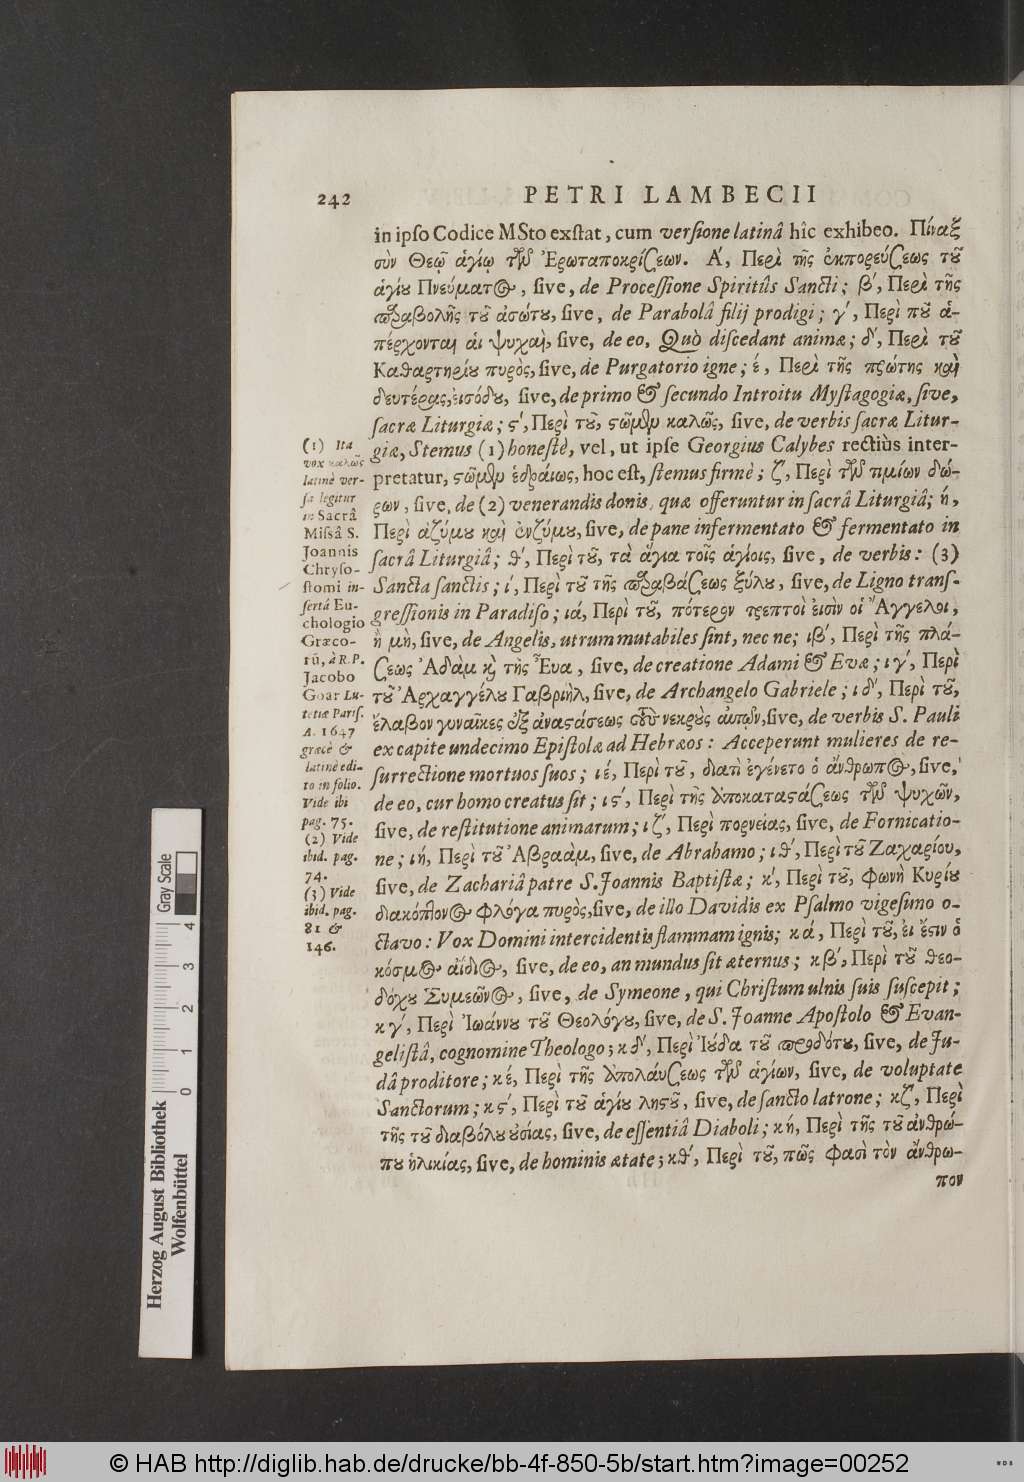 242 PETRI LAMBECII
in ipso Codice MSto exstat, cum versione latinâ hîc exhibeo. Πίναξ
σὺν Θεῷ ἁγίῳ τῶν Ἐρωταποκρίσεων. Α΄, Περὶ τῆς ἐκπορεύσεως τοῦ
ἁγίου Πνεύματος, sive, de Processione Spiritûs Sancti; β΄, Περὶ τῆς
παραβολῆς τοῦ ἀσώτου, sive, de Parabolâ filij prodigi; γ΄, Περὶ ποῦ ἀ-
πέρχονται αἱ ψυχαὶ, sive, de eo, Quò discedant animæ; δ΄, Περὶ τοῦ
Καθαρτηρίου πυρὸς, sive, de Purgatorio igne; έ, Περὶ τῆς πρώτης καὶ
δευτέρας εἰσόδου, sive, de primo & secundo Introitu Mystagogiæ, sive,
sacræ Liturgiæ; ϛ΄, Περὶ τοῦ, στῶμεν καλῶς, sive, de verbis sacræ Litur-
giæ, Stemus (1) honestè, vel, ut ipse Georgius Calybes rectiùs inter-
pretatur, στῶμεν ἑδραίως, hoc est, stemus firmè; ζ΄, Περὶ τῶν τιμίων δώ-
ρων, sive, de (2) venerandis donis, quæ offeruntur in sacrâ Liturgiâ; ή,
Περὶ ἀζύμου καὶ ἐνζύμου, sive, de pane infermentato & fermentato in
sacrâ Liturgiâ; θ΄, Περὶ τοῦ, τὰ ἅγια τοῖς ἁγίοις, sive, de verbis: (3)
Sancta sanctis; ί, Περὶ τοῦ τῆς παραβάσεως ξύλου, sive, de Ligno trans-
gressionis in Paradiso; ιά, Περὶ τοῦ, πότερον τρεπτοὶ εἰσὶν οἱ Ἄγγελοι,
ἢ μὴ, sive, de Angelis, utrum mutabiles sint, nec ne; ιβ΄, Περὶ τῆς πλά-
σεως Ἀδὰμ καὶ τῆς Ἔυα, sive, de creatione Adami & Evæ; ιγ΄, Περὶ
τοῦ Ἀρχαγγέλου Γαβριὴλ, sive, de Archangelo Gabriele; ιδ΄, Περὶ τοῦ,
ἔλαβον γυναῖκες ἐξ ἀναστάσεως τοὺς νεκροὺς αὐτῶν, sive, de verbis S. Pauli
ex capite undecimo Epistolæ ad Hebræos: Acceperunt mulieres de re-
surrectione mortuos suos; ιέ, Περὶ τοῦ, διατὶ ἐγένετο ὁ ἄνθρωπος, sive,
de eo, cur homo creatus sit; ιϛ΄, Περὶ τῆς ἀποκαταστάσεως τῶν ψυχῶν,
sive, de restitutione animarum; ιζ΄, Περὶ πορνείας, sive, de Fornicatio-
ne; ιή, Περὶ τοῦ Ἀβραὰμ, sive, de Abrahamo; ιθ΄, Περὶ τοῦ Ζαχαρίου,
sive, de Zachariâ patre S. Joannis Baptistæ; κ΄, Περὶ τοῦ, φωνὴ Κυρίου
διακόπτοντος φλόγα πυρὸς, sive, de illo Davidis ex Psalmo vigesimo o-
ctavo: Vox Domini intercidentis flammam ignis; κά, Περὶ τοῦ, εἰ ἔστιν ὁ
κόσμος ἀΐδιος, sive, de eo, an mundus sit æternus; κβ΄, Περὶ τοῦ θεο-
δόχου Συμεῶνος, sive, de Symeone, qui Christum ulnis suis suscepit;
κγ΄, Περὶ Ἰωάννου τοῦ Θεολόγου, sive, de S. Joanne Apostolo & Evan-
gelistâ, cognomine Theologo; κδ΄, Περὶ Ἰούδα τοῦ προδότου, sive, de Ju-
dâ proditore; κέ, Περὶ τῆς ἀπολαύσεως τῶν ἁγίων, sive, de voluptate
Sanctorum; κϛ΄, Περὶ τοῦ ἁγίου λῃστοῦ, sive, de sancto latrone; κζ΄, Περὶ
τῆς τοῦ διαβόλου οὐσίας, sive, de essentiâ Diaboli; κή, Περὶ τῆς τοῦ ἀνθρώ-
που ἡλικίας, sive, de hominis ætate; κθ΄, Περὶ τοῦ, πῶς φασὶ τὸν ἄνθρω-
πον
(1) Ita
vox καλῶς
latinè ver-
sa legitur
in Sacrâ
Missâ S.
Joannis
Chryso-
stomi in-
sertá Eu-
chologio
Græco-
rũ, à R.P.
Jacobo
Goar Lu-
tetiæ Paris.
A. 1647
græcè &
latinè edi-
to in folio.
Vide ibi
pag. 75.
(2) Vide
ibid. pag.
74.
(3) Vide
ibid. pag.
81 &
146.
Gray Scale
0 1 2 3 4
Herzog August Bibliothek
Wolfenbüttel
© HAB http://diglib.hab.de/drucke/bb-4f-850-5b/start.htm?image=00252